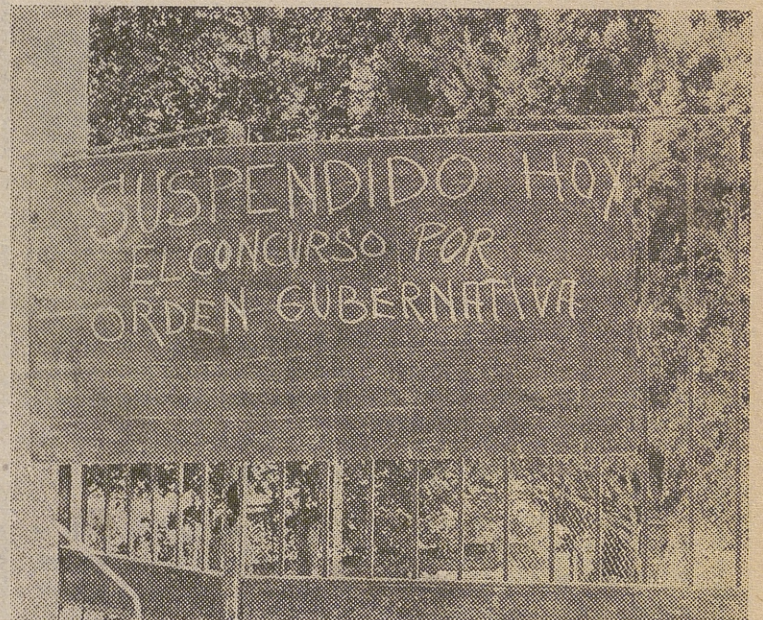 SUSPENDIDO HOY
EL CONCURSO POR
ORDEN GUBERNATIVA